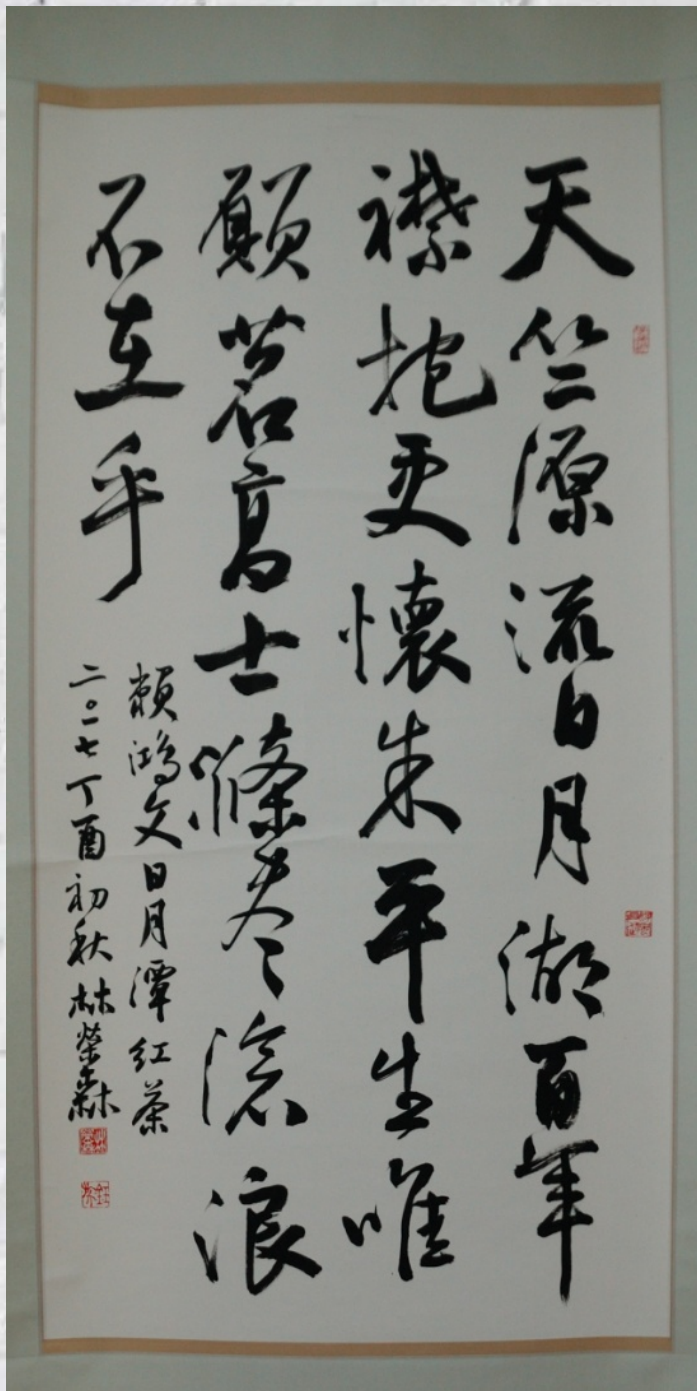 天竺源流日月湖百年
襟抱更懷朱平生唯
願茗高士滌盡滄浪
不在乎
賴鴻文日月潭紅茶
二〇一七丁酉初秋林榮森